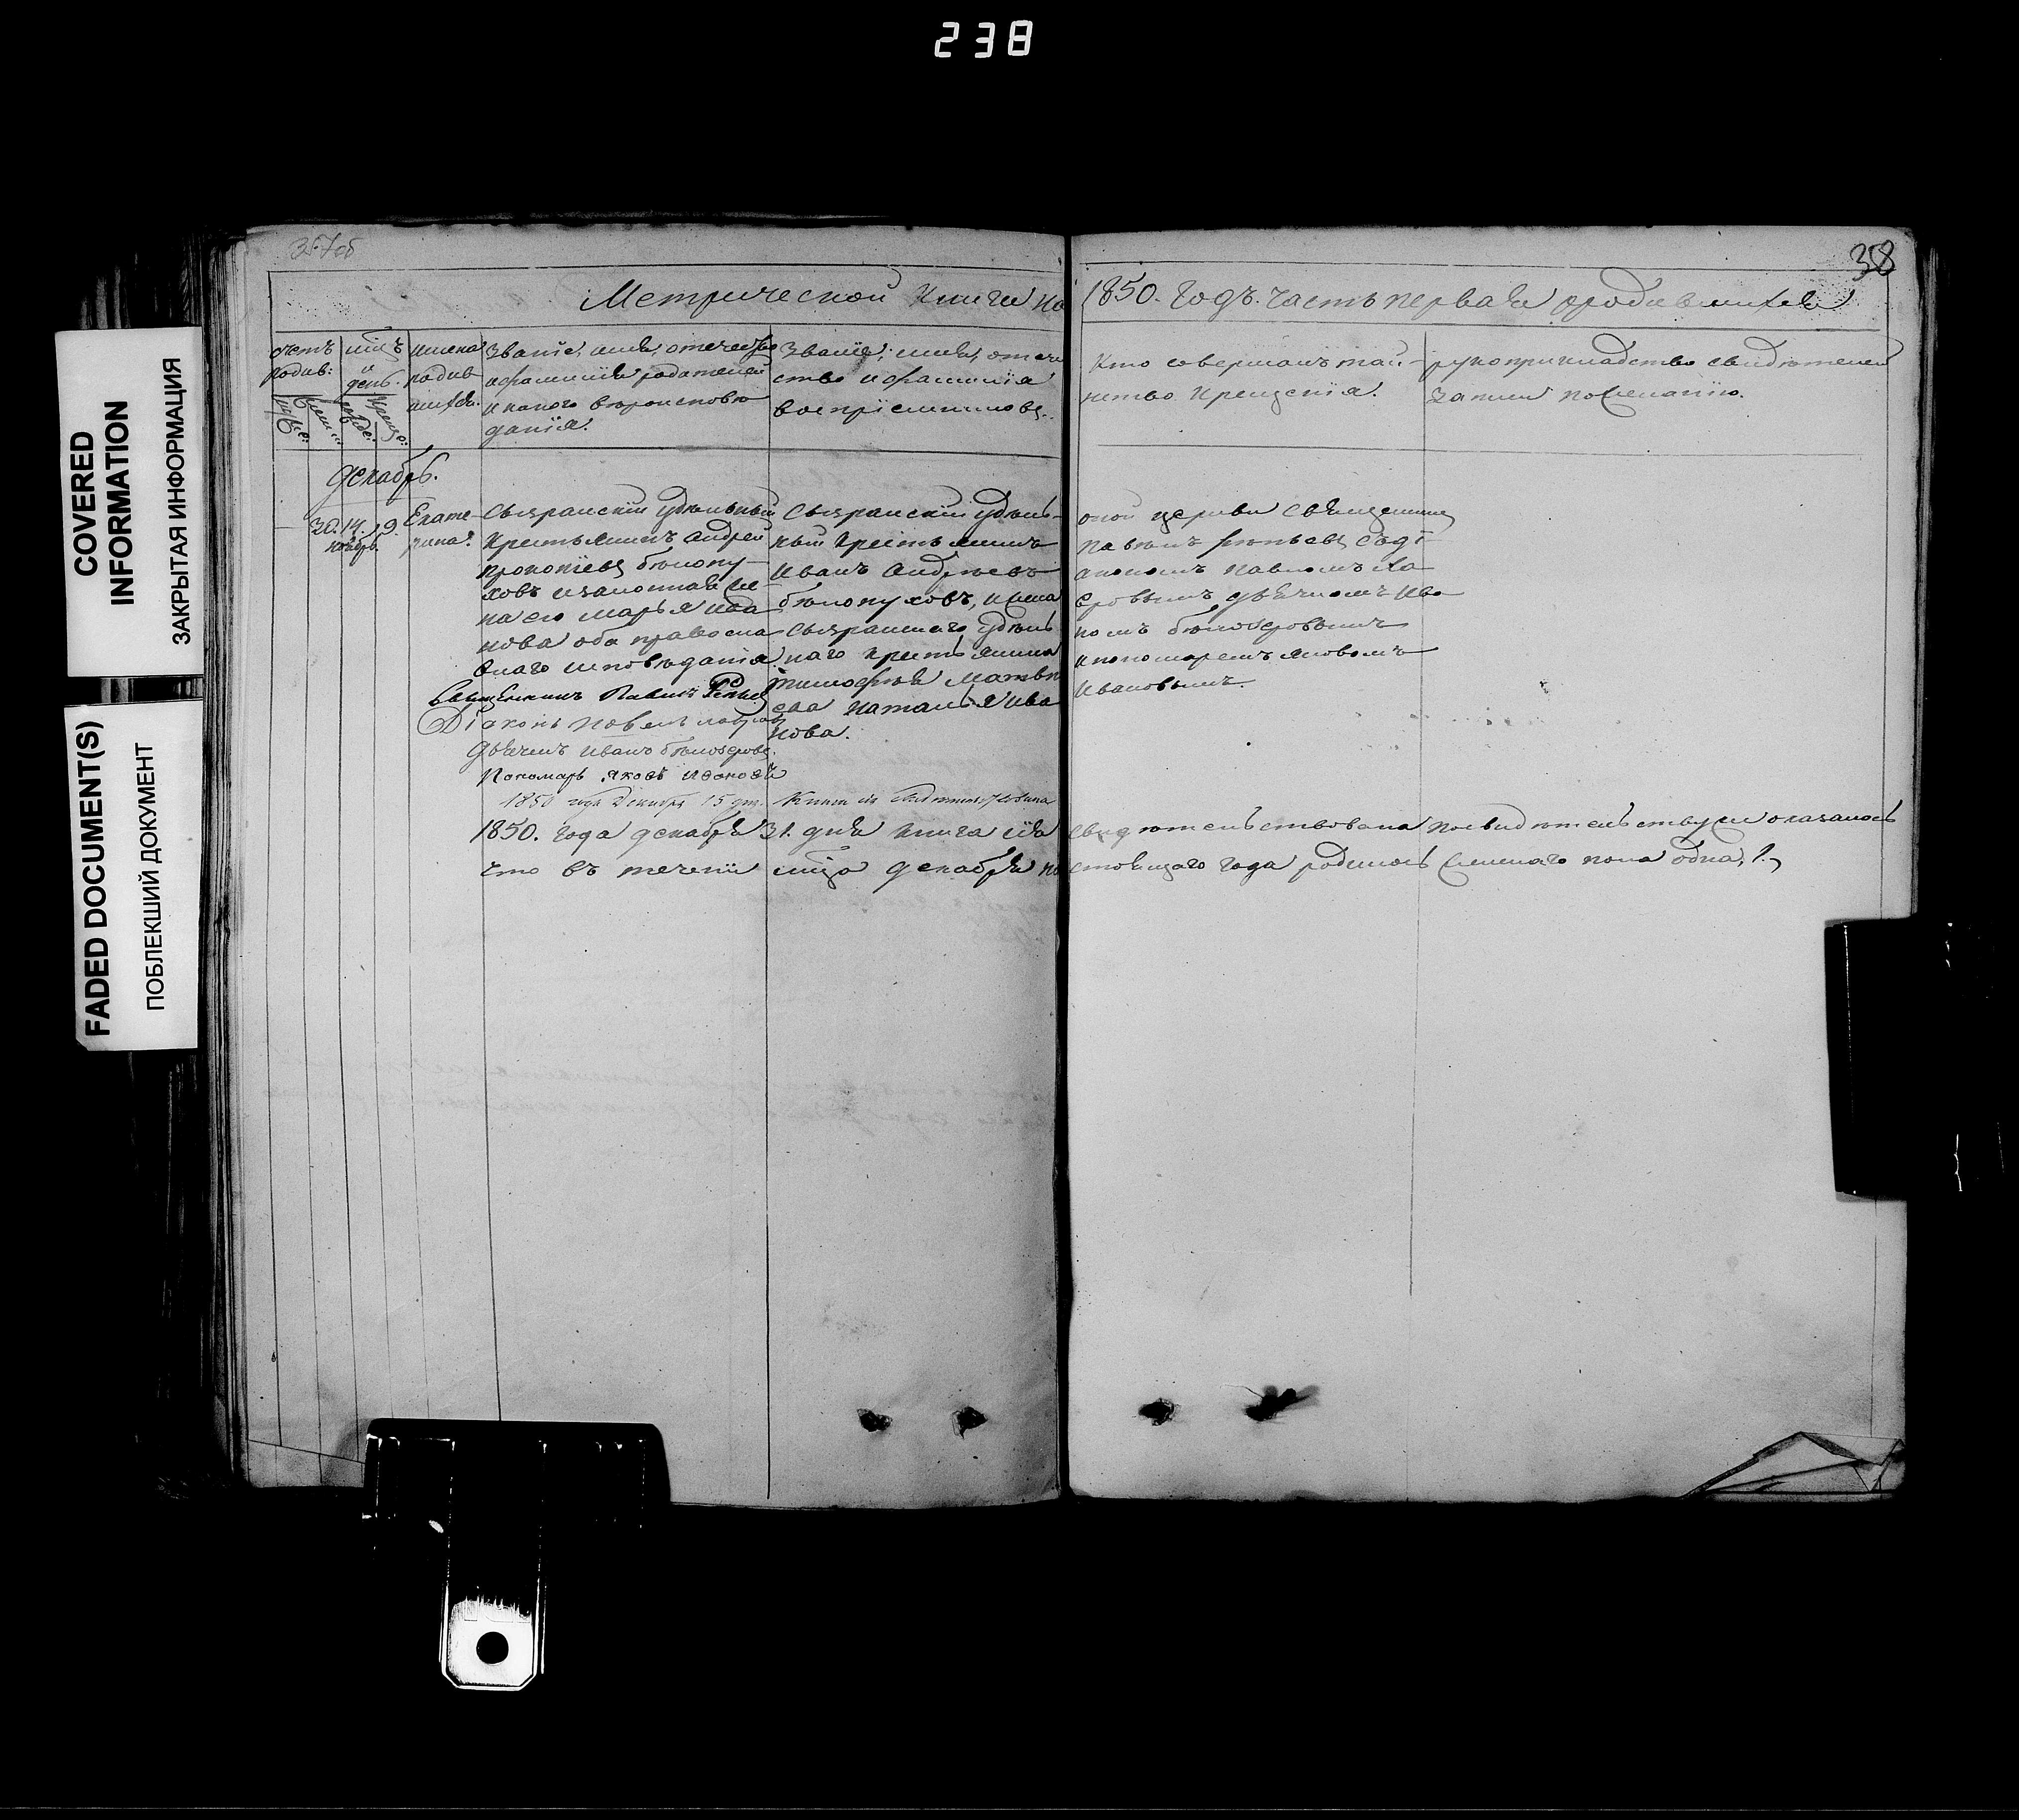 238
COVERED
INFORMATION
ЗАКРЫТАЯ ИНФОРМАЦИЯ
FADED DOCUMENT(S)
ПОБЛЕКШИЙ ДОКУМЕНТ
357об
38
Метрической Книги на 1850. Годъ. часть первая о родившихся
счетъ родив:
мцъ и день.
имена родив шихся.
Званіе, имя, отечество
и фамилія родителей
и какого вѣроисповѣ
данія.
Званіе, имя, отече
ство и фамилія
воспріемниковъ.
Кто совершалъ таи-
нство Крещенія.
рукоприкладство свидѣтелей
записи по желанію.
Декабрь.
30. 14. 19.
ноябрь.
Екате-
рина.
Сызранскій удѣльный
Крестьянинъ Андрей
Прокопіевъ бѣлопу-
ховъ и законная же-
на его Марья Ива
нова оба правосла
внаго исповѣданія
Сызранскій удѣль-
ный крестьянинъ
Иванъ Андреевъ
бѣлопуховъ, и жена
Сызранскаго удѣль
наго крестьянина
Тимофея Матвѣ
ева Наталья Ива
нова.
оной церкви Священник
Павелъ Репьевъ съ ді-
акономъ Павломъ Ла-
вровымъ дьячкомъ Ива
номъ бѣлозеровымъ
и пономаремъ Яковомъ
Ивановымъ.
Священникъ Павелъ Репьев
Діаконъ Павелъ Лавров
дьячекъ Иванъ бѣлозеровъ.
Пономарь Яковъ Ивановъ
1850 года Декабря 15 дня
1850. года декабря 31. дня книга сія свидѣтельствована по свидѣтельству и оказалось
что въ теченіи мца декабря настоящаго года родилось женскаго пола одна, 1.